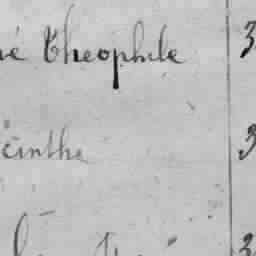 né Theophile 3
cinthe 3
3